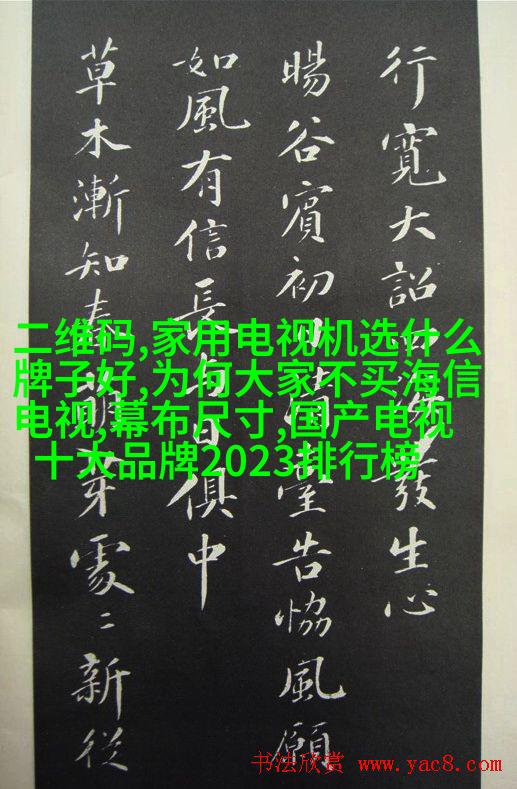 行寬大詔四海發生心
暘谷賓初日清臺告協風願
如風有信長與日俱中
草木漸知春萌芽處〻新從
二维码,家用电视机选什么
牌子好,为何大家不买海信
电视,幕布尺寸,国产电视
十大品牌2023排行榜
书法欣赏 www.yac8.com